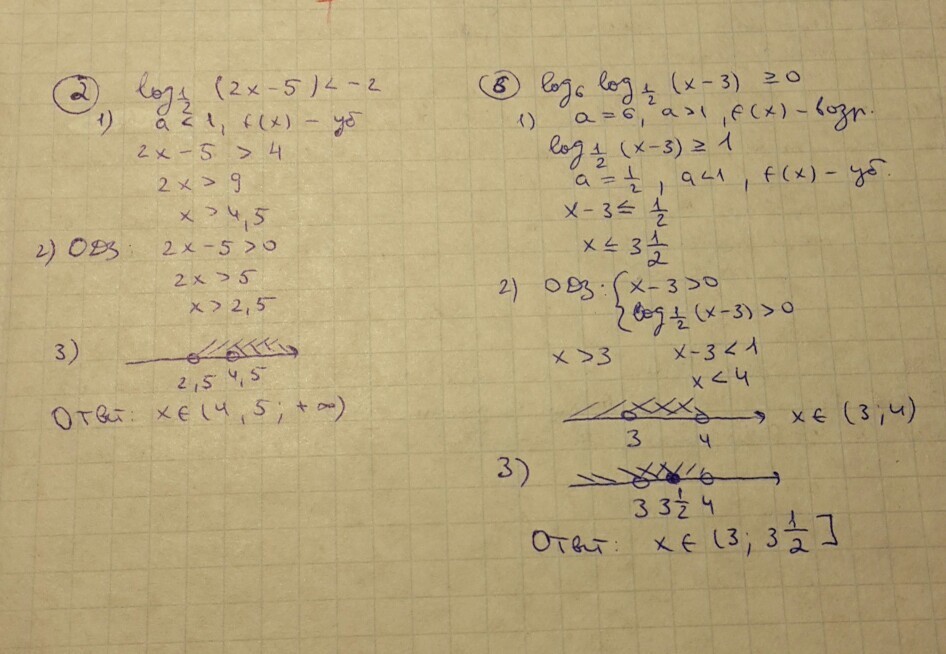 ② log_{1/2} (2x-5) < -2
1) a < 1, f(x) - уб
2x-5 > 4
2x > 9
x > 4,5
2) ОДЗ: 2x-5>0
2x > 5
x > 2,5
3)
2,5 4,5
Ответ: x ∈ (4,5; +∞)
⑥ log_6 log_{1/2} (x-3) ≥ 0
1) a = 6, a>1, f(x) - возр.
log_{1/2} (x-3) ≥ 1
a = 1/2, a<1, f(x) - уб.
x-3 ≤ 1/2
x ≤ 3 1/2
2) ОДЗ: { x-3>0
log_{1/2} (x-3) > 0
x > 3 x-3 < 1
x < 4
3 4 x ∈ (3; 4)
3)
3 3 1/2 4
Ответ: x ∈ (3; 3 1/2]